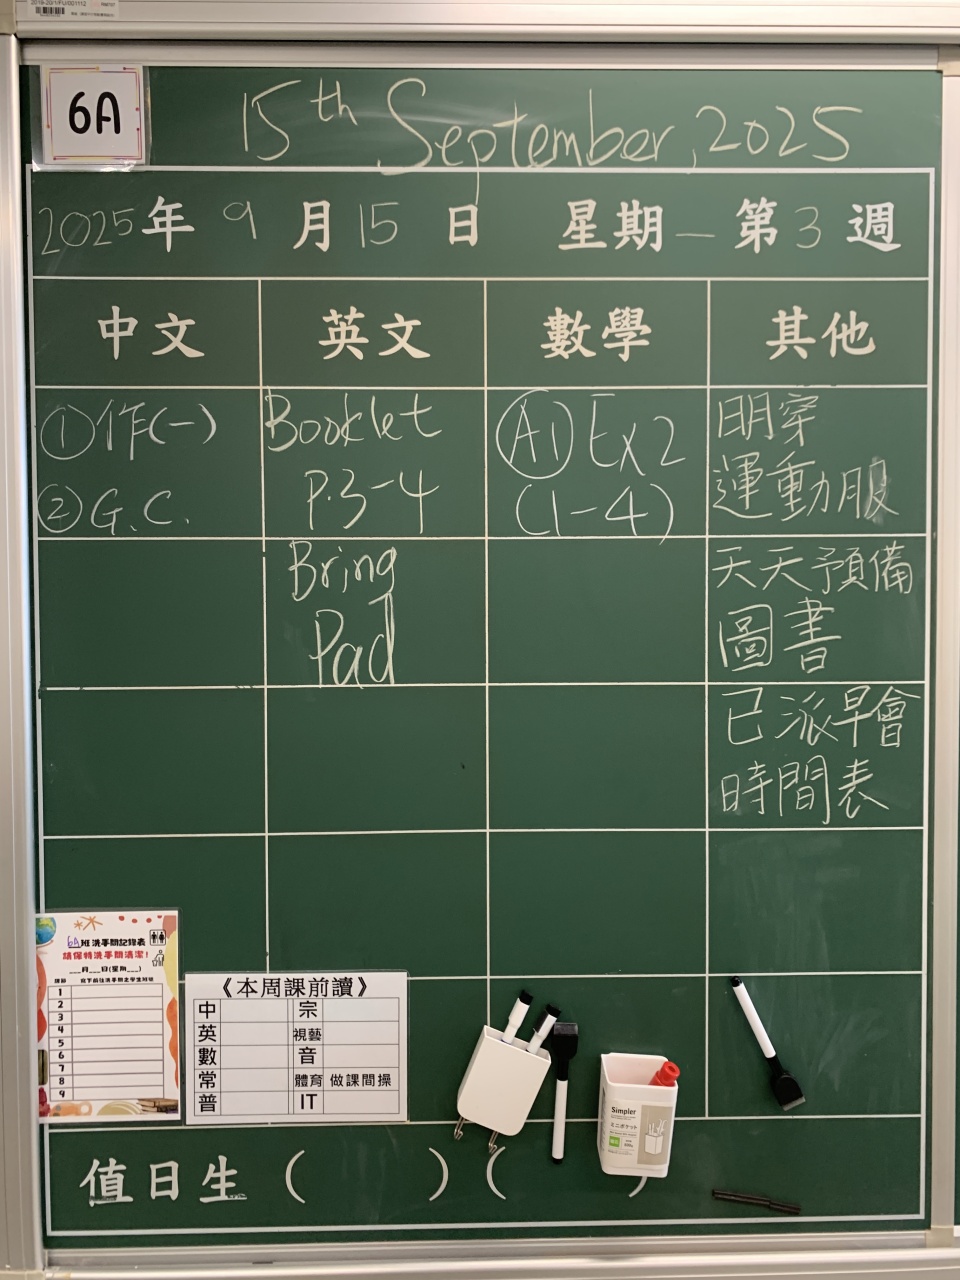 2019-20/1/FU/001112
6A
15th September, 2025
2025年 9月15日 星期一 第3週
中文 英文 數學 其他
①作(一)
②G.C.
Booklet
P.3-4
Bring
Pad
A1 Ex2
(1-4)
明穿
運動服
天天預備
圖書
已派早會
時間表
6A班洗手間記錄表
請保持洗手間清潔!
___月___日(星期___)
1
2
3
4
5
6
7
8
9
《本周課前讀》
中 宗
英 視藝
數 音
常 體育 做課間操
普 IT
Simpler
ミニポケット
值日生 ( ) ( )